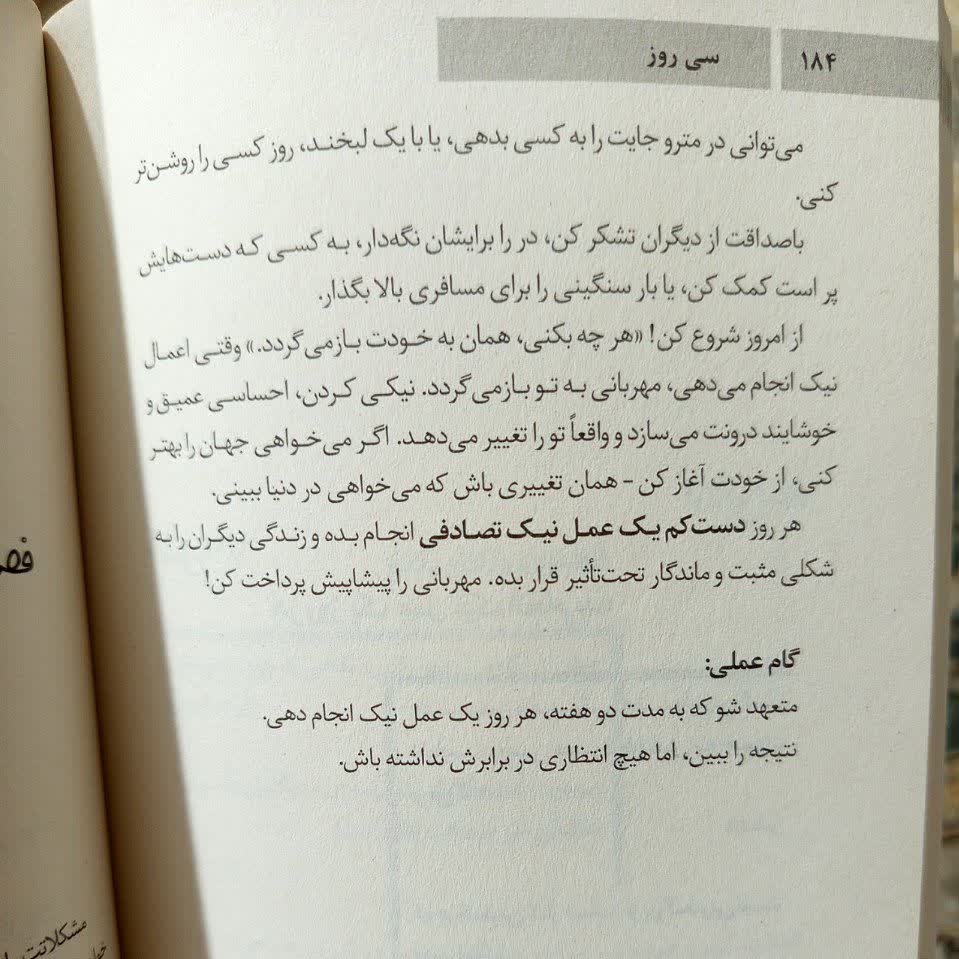 ۱۸۴
سی روز
می‌توانی در مترو جایت را به کسی بدهی، یا با یک لبخند، روز کسی را روشن‌تر
کنی.
باصداقت از دیگران تشکر کن، در را برایشان نگه‌دار، به کسی که دست‌هایش
پر است کمک کن، یا بار سنگینی را برای مسافری بالا بگذار.
از امروز شروع کن! «هر چه بکنی، همان به خودت بازمی‌گردد.» وقتی اعمال
نیک انجام می‌دهی، مهربانی به تو بازمی‌گردد. نیکی کردن، احساسی عمیق و
خوشایند درونت می‌سازد و واقعاً تو را تغییر می‌دهد. اگر می‌خواهی جهان را بهتر
کنی، از خودت آغاز کن - همان تغییری باش که می‌خواهی در دنیا ببینی.
هر روز دست‌کم یک عمل نیک تصادفی انجام بده و زندگی دیگران را به
شکلی مثبت و ماندگار تحت‌تأثیر قرار بده. مهربانی را پیشاپیش پرداخت کن!
گام عملی:
متعهد شو که به مدت دو هفته، هر روز یک عمل نیک انجام دهی.
نتیجه را ببین، اما هیچ انتظاری در برابرش نداشته باش.
مشکلاتت